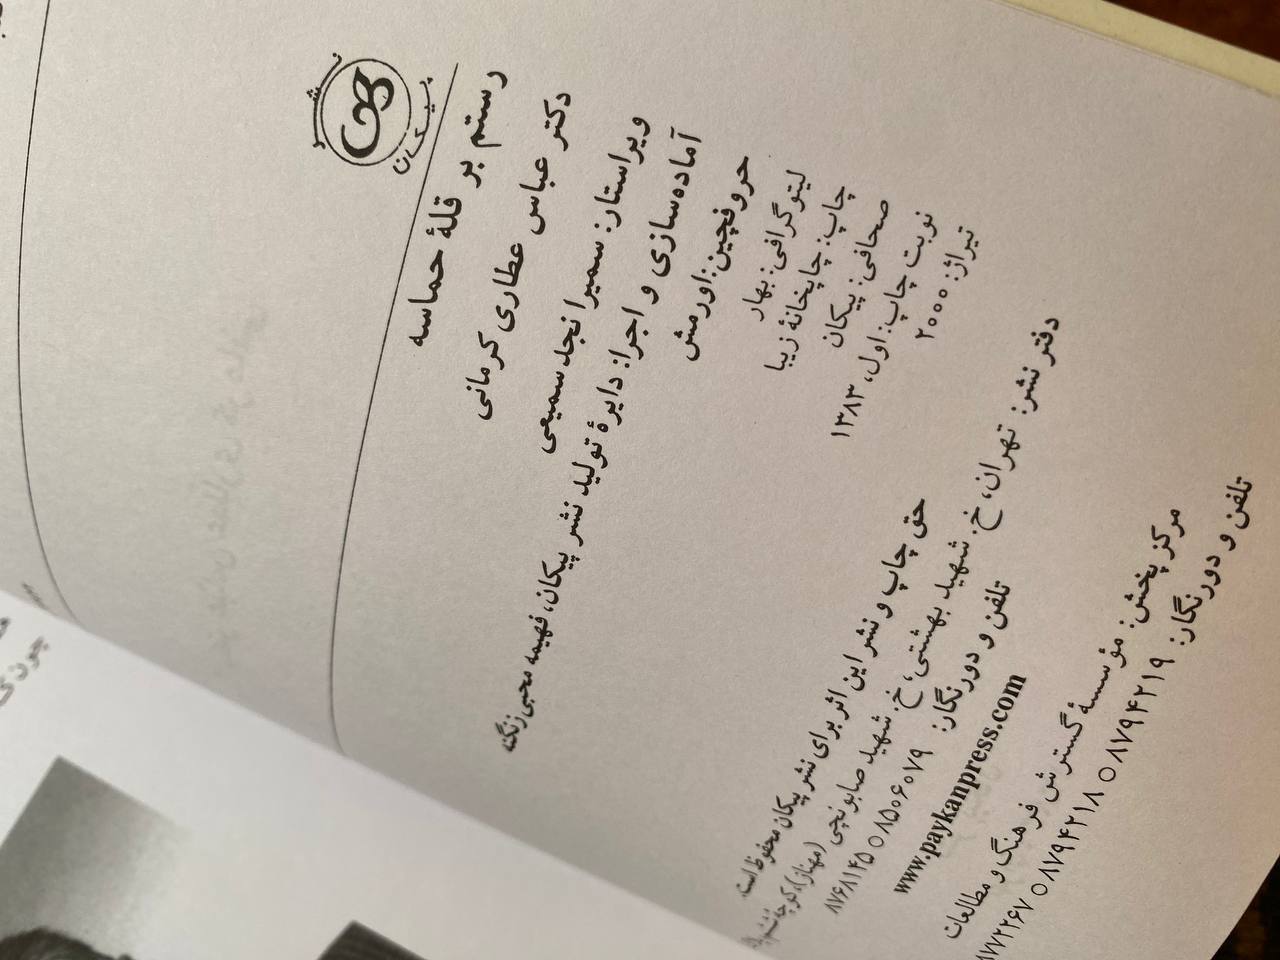 نشر پیکان
رستم بر قلهٔ حماسه
دکتر عباس عطاری کرمانی
ویراستار: سمیرا نجد سمیعی
آماده‌سازی و اجرا: دایرهٔ تولید نشر پیکان، فهیمه محبی زنگنه
حروفچین: اورمش
لیتوگرافی: بهار
چاپ: چاپخانهٔ زیبا
صحافی: پیکان
نوبت چاپ: اول، ۱۳۸۳
تیراژ: ۲۰۰۰
حق چاپ و نشر این اثر برای نشر پیکان محفوظ است.
دفتر نشر: تهران، خ. شهید بهشتی، خ. شهید صابونچی (مهناز)، کوچه
تلفن و دورنگار: ۸۵۰۶۰۷۹ ○ ۸۷۶۸۱۴۵
www.paykanpress.com
مرکز پخش: مؤسسهٔ گسترش فرهنگ و مطالعات
تلفن و دورنگار: ۸۷۹۴۲۱۹ ○ ۸۷۹۴۲۱۸ ○ ۸۷۷۲۲۶۷